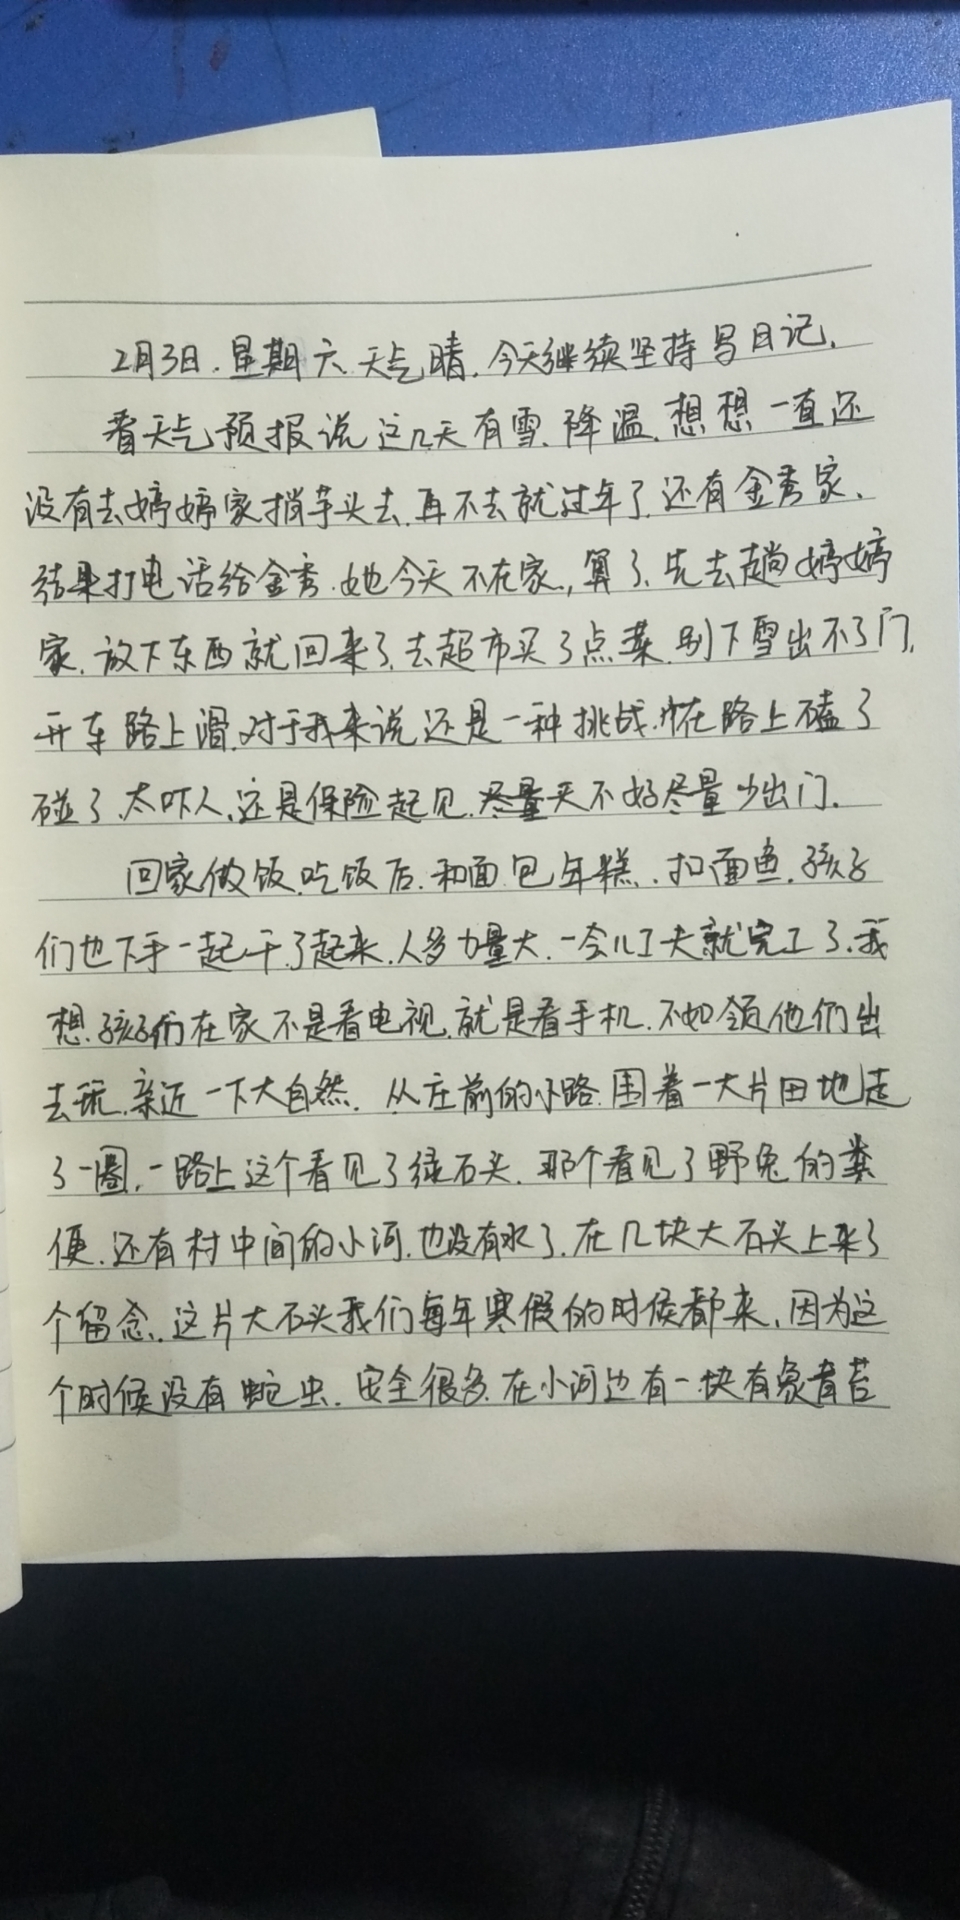 2月3日.星期六.天气晴.今天继续坚持写日记.
看天气预报说这几天有雪.降温.想想一直还
没有去婷婷家捎芋头去.再不去就过年了.还有金秀家.
结果打电话给金秀.她今天不在家,算了.先去趟婷婷
家.放下东西就回来了.去超市买了点菜.别下雪出不了门.
开车路上滑.对于我来说还是一种挑战.在路上磕了
碰了.太吓人.还是保险起见.天不好尽量少出门.
回家做饭.吃饭后.和面.包年糕.扣面鱼.孩子
们也下手一起干了起来.人多力量大.一会儿工夫就完工了.我
想.孩子们在家不是看电视.就是看手机.不如领他们出
去玩.亲近一下大自然.从庄前的小路.围着一大片田地走
了一圈.一路上这个看见了绿石头.那个看见了野兔的粪
便.还有村中间的小河.也没有水了.在几块大石头上来了
个留念.这片大石头我们每年寒假的时候都来.因为这
个时候没有蛇虫.安全很多.在小河边有一块有象青苔